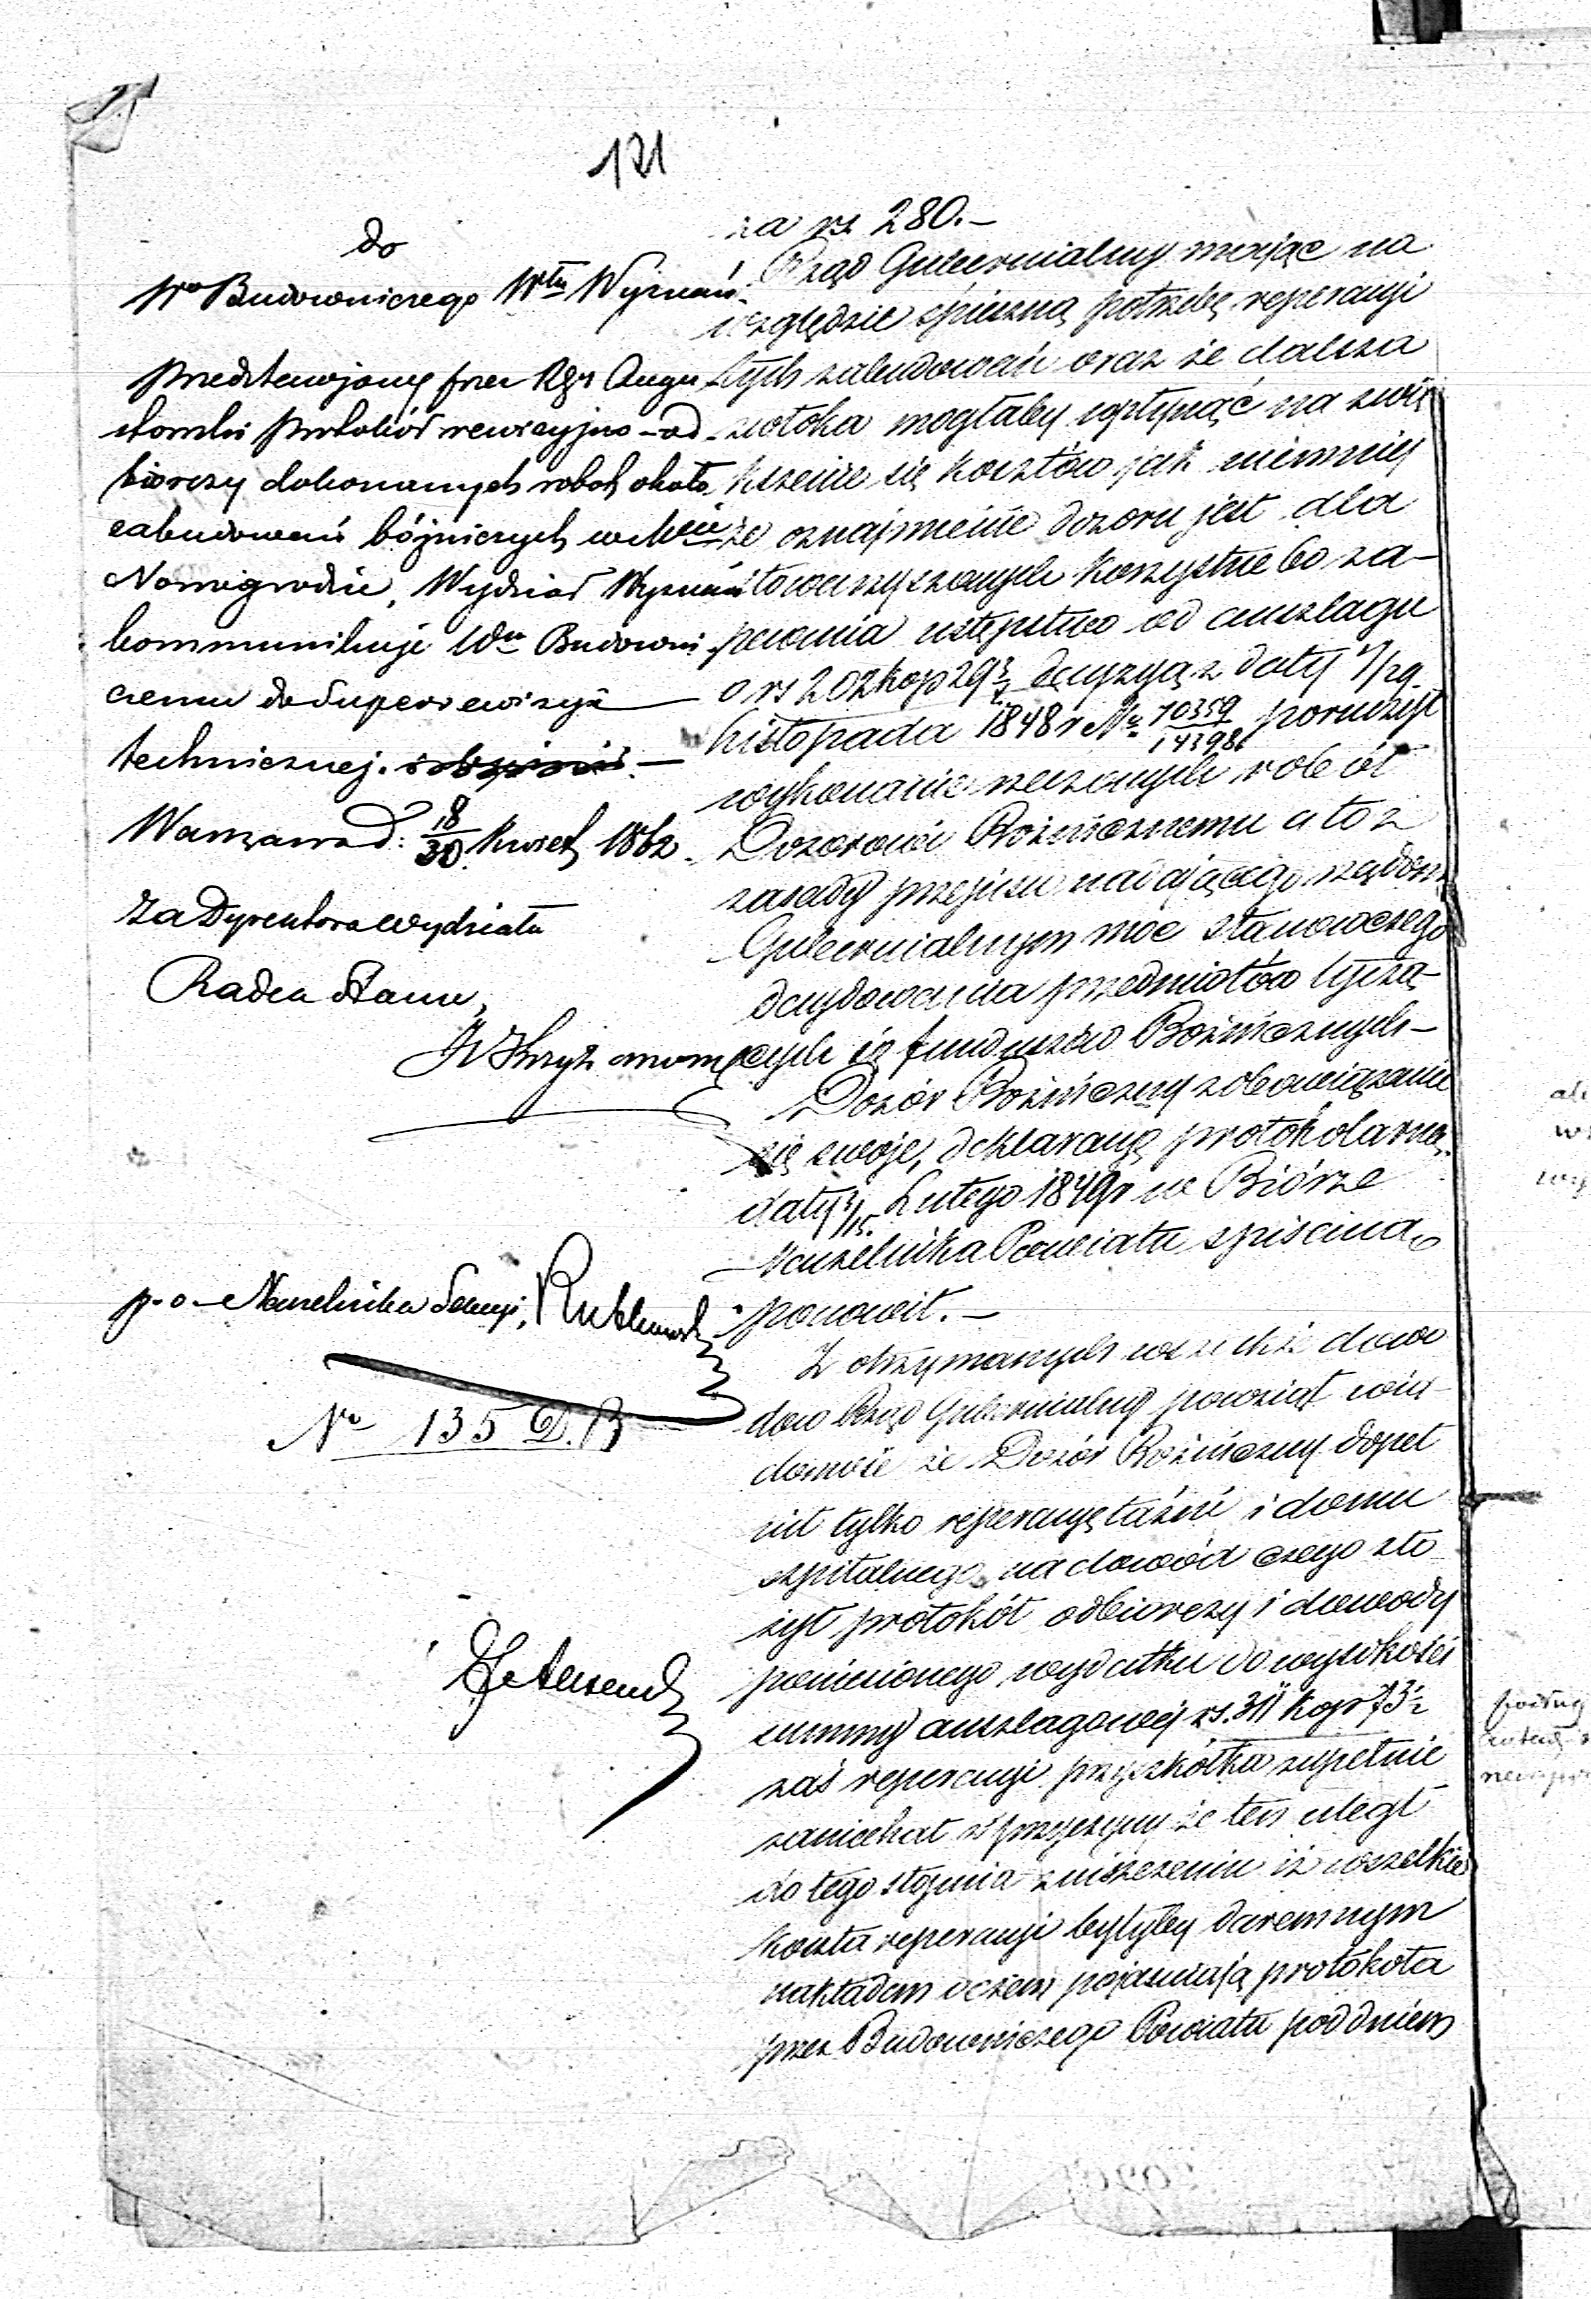 121
do
Wo Budowniczego Włu Wyznań
Przedstawiony przez Rząd Augu
stowski protokół rewizyjno-od
biorczy dokonanych robot około
zabudowań bóżniczych w Mcie
Nowogrodzie, Wydział Wyznań
kommunikuje Wmu Budowni
czemu do Superrewizyi
technicznej.
Warszawa d: 18/30 Kwiet 1862
Za Dyrektora Wydziału
Radca Stanu,
p. o. Naczelnika Sekcyi, Rutkowski
No 135 D. B
za rs 280.-
Rząd Gubernialny mając na
względzie śpieszną potrzebę reperacyi
tych zabudowań oraz że dalsza
zwłoka mogłaby wpłynąć na zwię
kszenie się kosztów jak niemniej
że oznajmienie dozoru jest dla
stowarzyszonych korzystne bo za-
pewnia ustępstwo od anszlagu
o rs 202 kop 29½ decyzyą z daty 17/29
listopada 1848 r No 70359/143986 poruczył
wykonanie rzeczonych robót
Dozorowi Bóżniczemu a to z
zasady przepisu nadającego rządom
Gubernialnym moc stanowczego
decydowania przedmiotów tyczą-
cych się funduszów Bożniczych-
Dozór Bożniczny zobowiązanie
się swoje, deklaracyę protokolarną
daty 3/15 Lutego 1849 r w Biórze
Naczelnika Powiatu spisaną
ponowił.-
Z otrzymanych wszakże dowo
dów Rząd Gubernialny powziął wia-
domość że Dozór Bożniczny dopeł
nił tylko reperacyę łaźni i domu
szpitalnego na dowód czego zło
żył protokół odbiorczy i dowody
poniesionego wydatku do wysokości
summy anszlagowej rs. 311 kop 73½
zaś reperacyi przyszkółka zupełnie
zaniechał z przyczyny że ten uległ
do tego stopnia zniszczeniu iż wszelkie
koszta reperacyi byłyby daremnym
nakładem o czem pojaśniają protokóła
przez Budowniczego Powiatu pod dniem